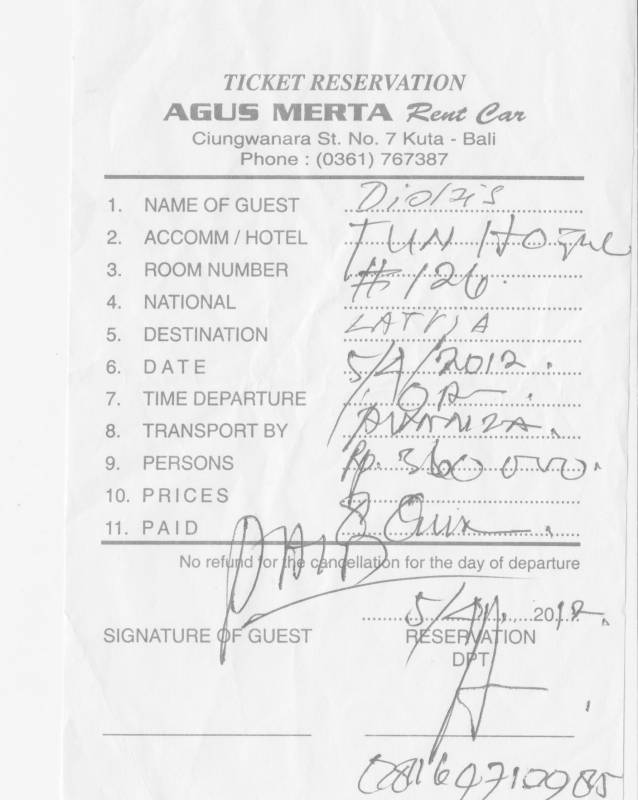 TICKET RESERVATION
AGUS MERTA Rent Car
Ciungwanara St. No. 7 Kuta - Bali
Phone : (0361) 767387
1. NAME OF GUEST
2. ACCOMM / HOTEL TUN
3. ROOM NUMBER # 126.
4. NATIONAL
5. DESTINATION LATVJA
6. DATE 5/4/2012.
7. TIME DEPARTURE
8. TRANSPORT BY
9. PERSONS Rp. 360 000.
10. PRICES
11. PAID 8
PAID
No refund for the cancellation for the day of departure
5/4, 2012.
SIGNATURE OF GUEST RESERVATION
DPT